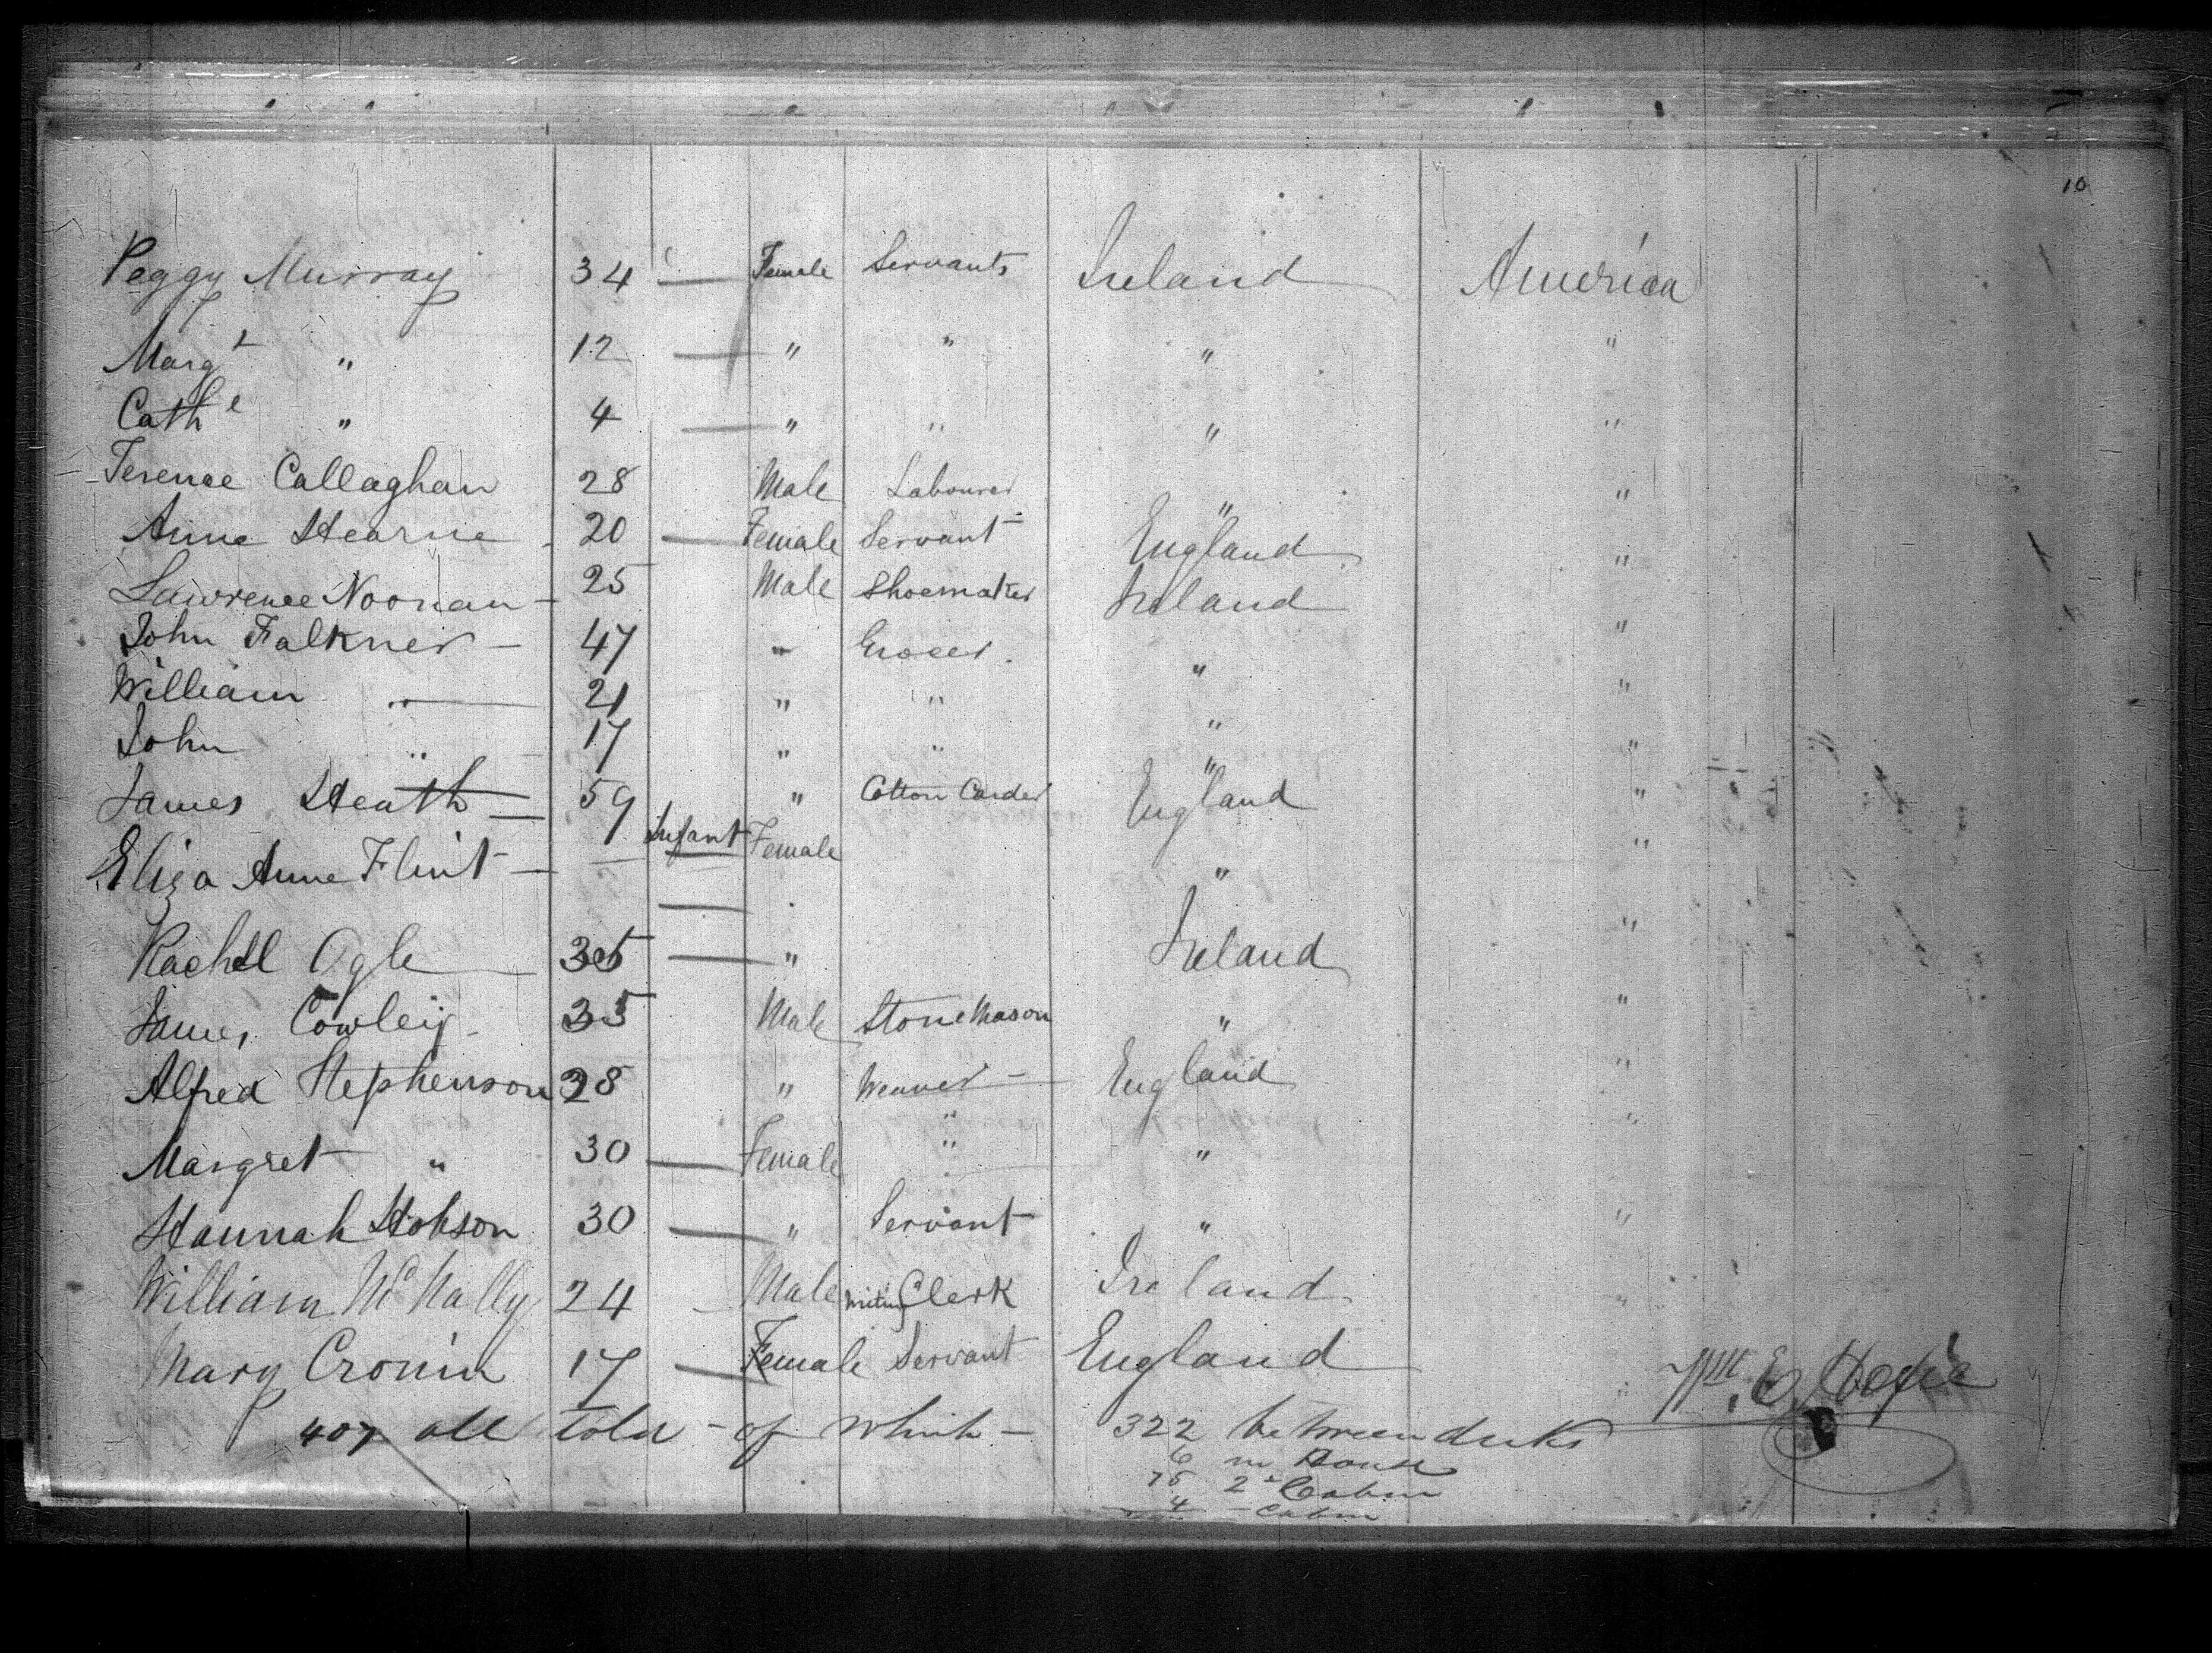 10
Peggy Murray 34 — Female Servants Ireland America
Margt " 12 — " " " "
Cathe " 4 — " " " "
Terence Callaghan 28 Male Labourer " "
Anne Hearne - 20 — Female Servant England "
Lawrence Noonan - 25 Male Shoemaker Ireland "
John Falkner - 47 " Grocer. " "
William " — 21 " " " "
John " - 17 " " " "
James Heath — 59 " Cotton Carder England "
Eliza Anne Flint — Infant Female " "
Rachel Ogle — 35 — " Ireland "
James Cowley - 35 Male Stone Mason " "
Alfred Stephenson 38 " Weaver - England "
Margret " 30 — Female " " "
Hannah Hobson 30 — " Servant " "
William McNally 24 - Male Writing Clerk Ireland "
Mary Cronin 17 — Female Servant England "
407 all told - of which - 322 between decks
6 in House
75 2d Cabin
4 - Cabin
Wm. E.